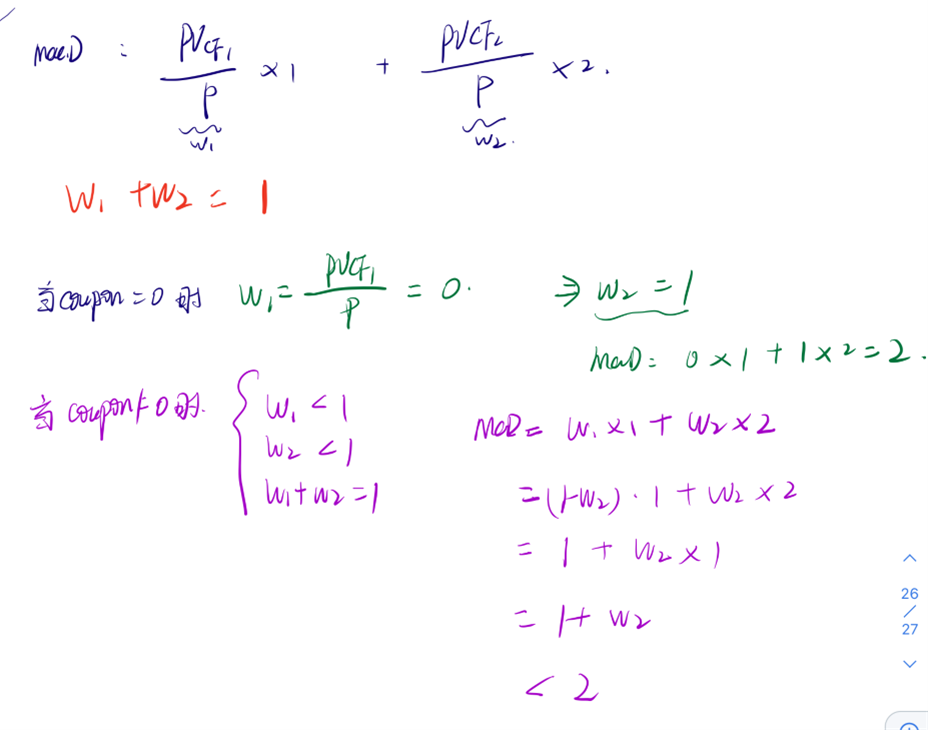 Mac.D : PVCF₁/P × 1 + PVCF₂/P × 2.
W₁ W₂.
W₁ + W₂ = 1
当 coupon = 0 时 W₁ = PVCF₁/P = 0. ⇒ W₂ = 1
MacD = 0 × 1 + 1 × 2 = 2.
当 coupon ≠ 0 时. { W₁ < 1
W₂ < 1
W₁ + W₂ = 1
MacD = W₁ × 1 + W₂ × 2
= (1-W₂) · 1 + W₂ × 2
= 1 + W₂ × 1
= 1 + W₂
< 2
26
/
27